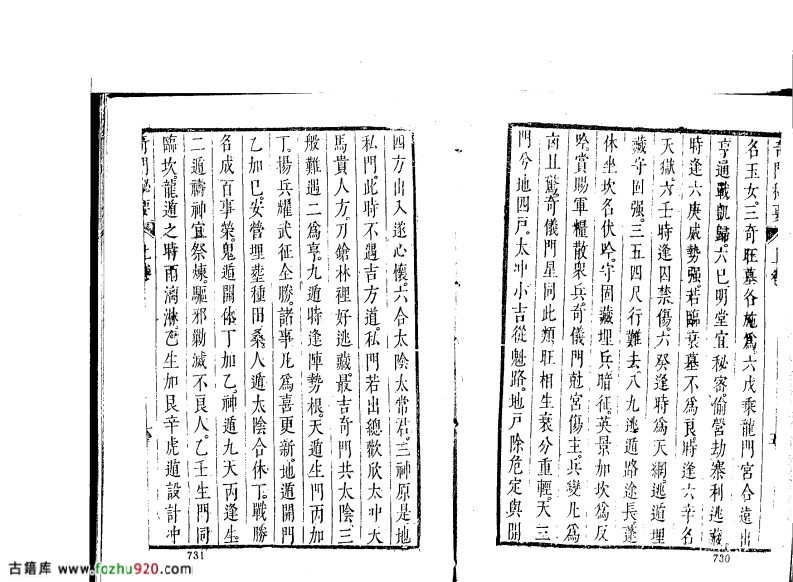 奇門秘要 上卷
名玉女。三奇旺墓各施爲。六戊乘龍門宮合遠出
亨通戰凱歸。六巳明堂宜秘審。偷營劫寨利逃藏。
時逢六庚威勢强。若臨衰墓不爲良。時逢六辛名
天獄。六壬時逢囚禁傷。六癸逢時爲天網。逃道埋
藏守固强。三五四尺行難去。八九逃遁路途長。蓬
休坐坎名伏吟。守固藏埋兵暗征。英景加坎爲反
吟。賞賜軍糧散衆兵。奇儀門尅宮傷主。兵變凡爲
凶且驚。奇儀門星同此類。旺相生衰分重輕。天三
門兮地四戸。太冲小吉從魁路。地戸除危定與開
730
四方出入遂心懷。六合太陰太常君。三神原是地
私門。此時不遇吉方道。私門若出總歡欣。太冲天
馬貴人方。刀鎗林裡好逃藏。最吉奇門共太陰。三
般難遇二爲亨。九遁時逢陣勢根。天遁生門丙加
丁。揚兵耀武征全勝。諸事凡爲喜更新。地遁開門
乙加巳。安營埋塟種田桑。人遁太陰合休丁。戰勝
各成百事榮。鬼遁開休丁加乙。神遁九天丙逢生。
二遁禱神宜祭煉。驅邪勦滅不良人。乙壬生門同
臨坎。龍遁之時雨漓淋。乙生加艮辛虎遁。設計冲
奇門秘要 上卷
731
古籍库 www.fozhu920.com